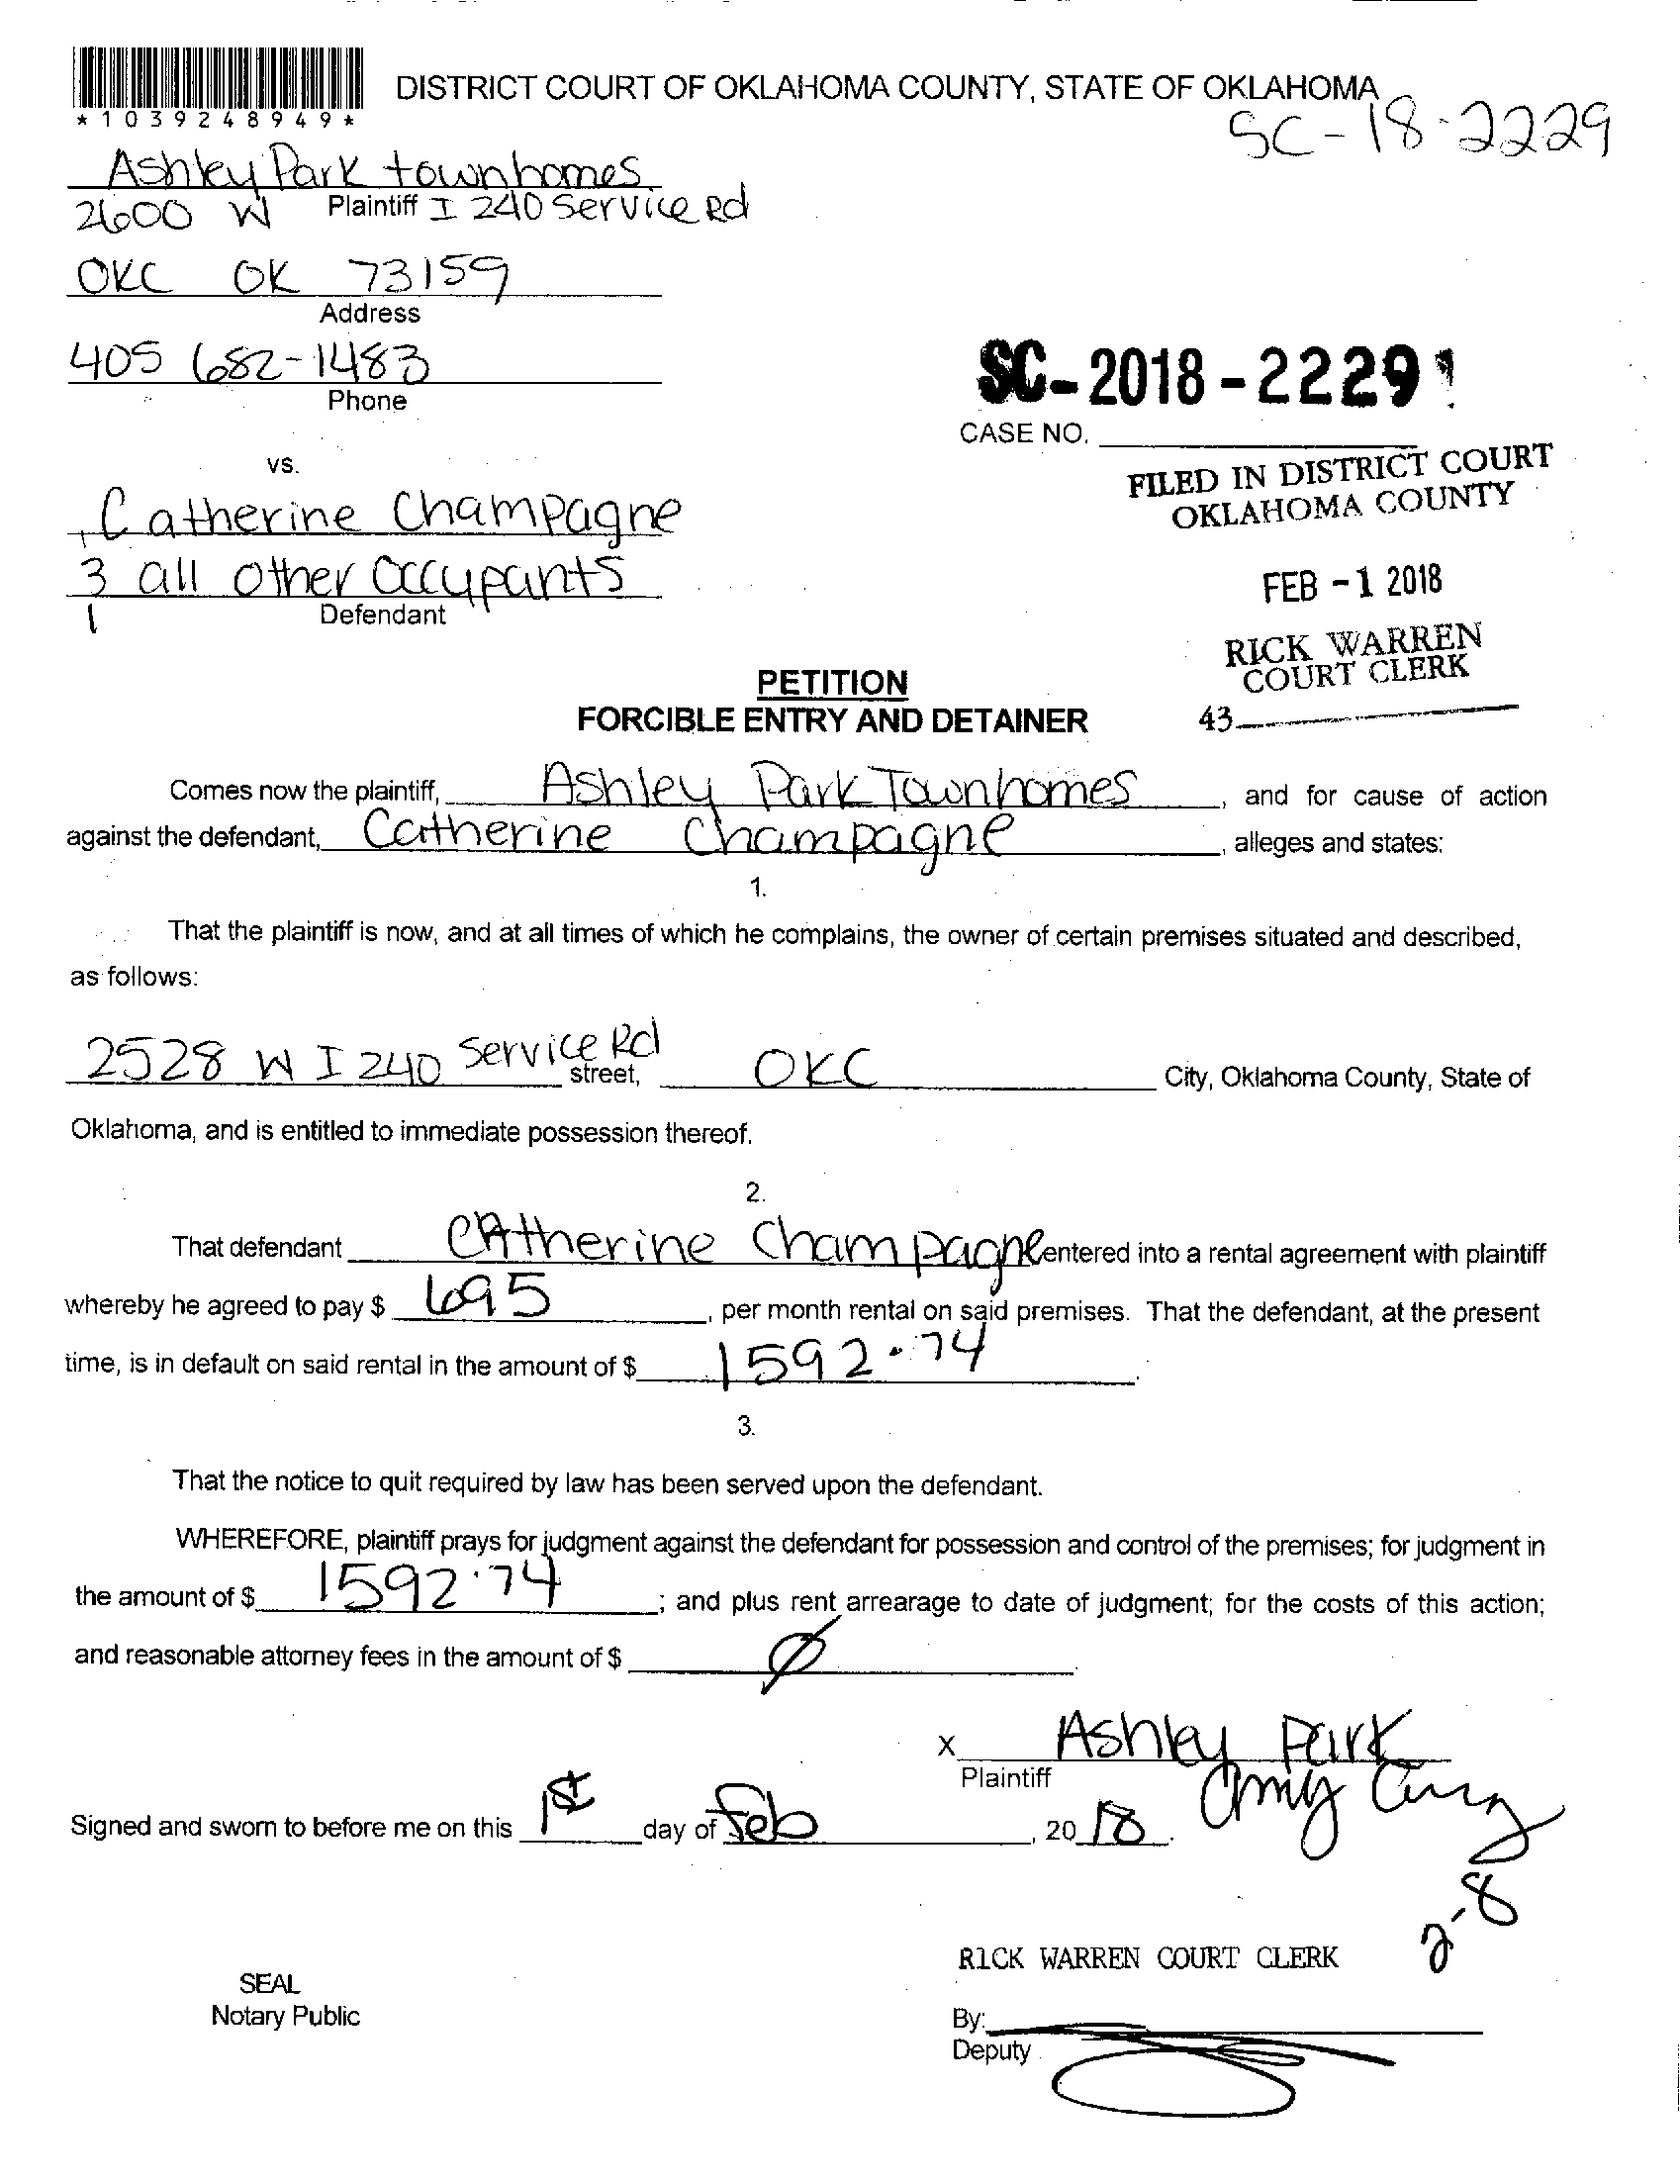 DISTRICT COURT OF OKLAHOMA COUNTY, STATE OF OKLAHOMA
*1039248949*
SC-18-2229
Ashley Park townhomes
2600 W I 240 Service Rd
Plaintiff
OKC OK 73159
Address
405 682-1483
Phone
SC-2018-2229
CASE NO.
vs.
FILED IN DISTRICT COURT
OKLAHOMA COUNTY
Catherine Champagne
3 all other occupants
Defendant
FEB -1 2018
RICK WARREN
COURT CLERK
43
PETITION
FORCIBLE ENTRY AND DETAINER
Comes now the plaintiff, Ashley Park Townhomes, and for cause of action
against the defendant, Catherine Champagne, alleges and states:
1.
That the plaintiff is now, and at all times of which he complains, the owner of certain premises situated and described,
as follows:
2528 W I 240 Service Rd street, OKC City, Oklahoma County, State of
Oklahoma, and is entitled to immediate possession thereof.
2.
That defendant Catherine Champagne entered into a rental agreement with plaintiff
whereby he agreed to pay $ 695, per month rental on said premises. That the defendant, at the present
time, is in default on said rental in the amount of $ 1592.74.
3.
That the notice to quit required by law has been served upon the defendant.
WHEREFORE, plaintiff prays for judgment against the defendant for possession and control of the premises; for judgment in
the amount of $ 1592.74; and plus rent arrearage to date of judgment; for the costs of this action;
and reasonable attorney fees in the amount of $ Ø.
X Ashley Park
Plaintiff
Signed and sworn to before me on this 1st day of Feb, 20 18.
2-8
RICK WARREN COURT CLERK
SEAL
Notary Public
By:
Deputy